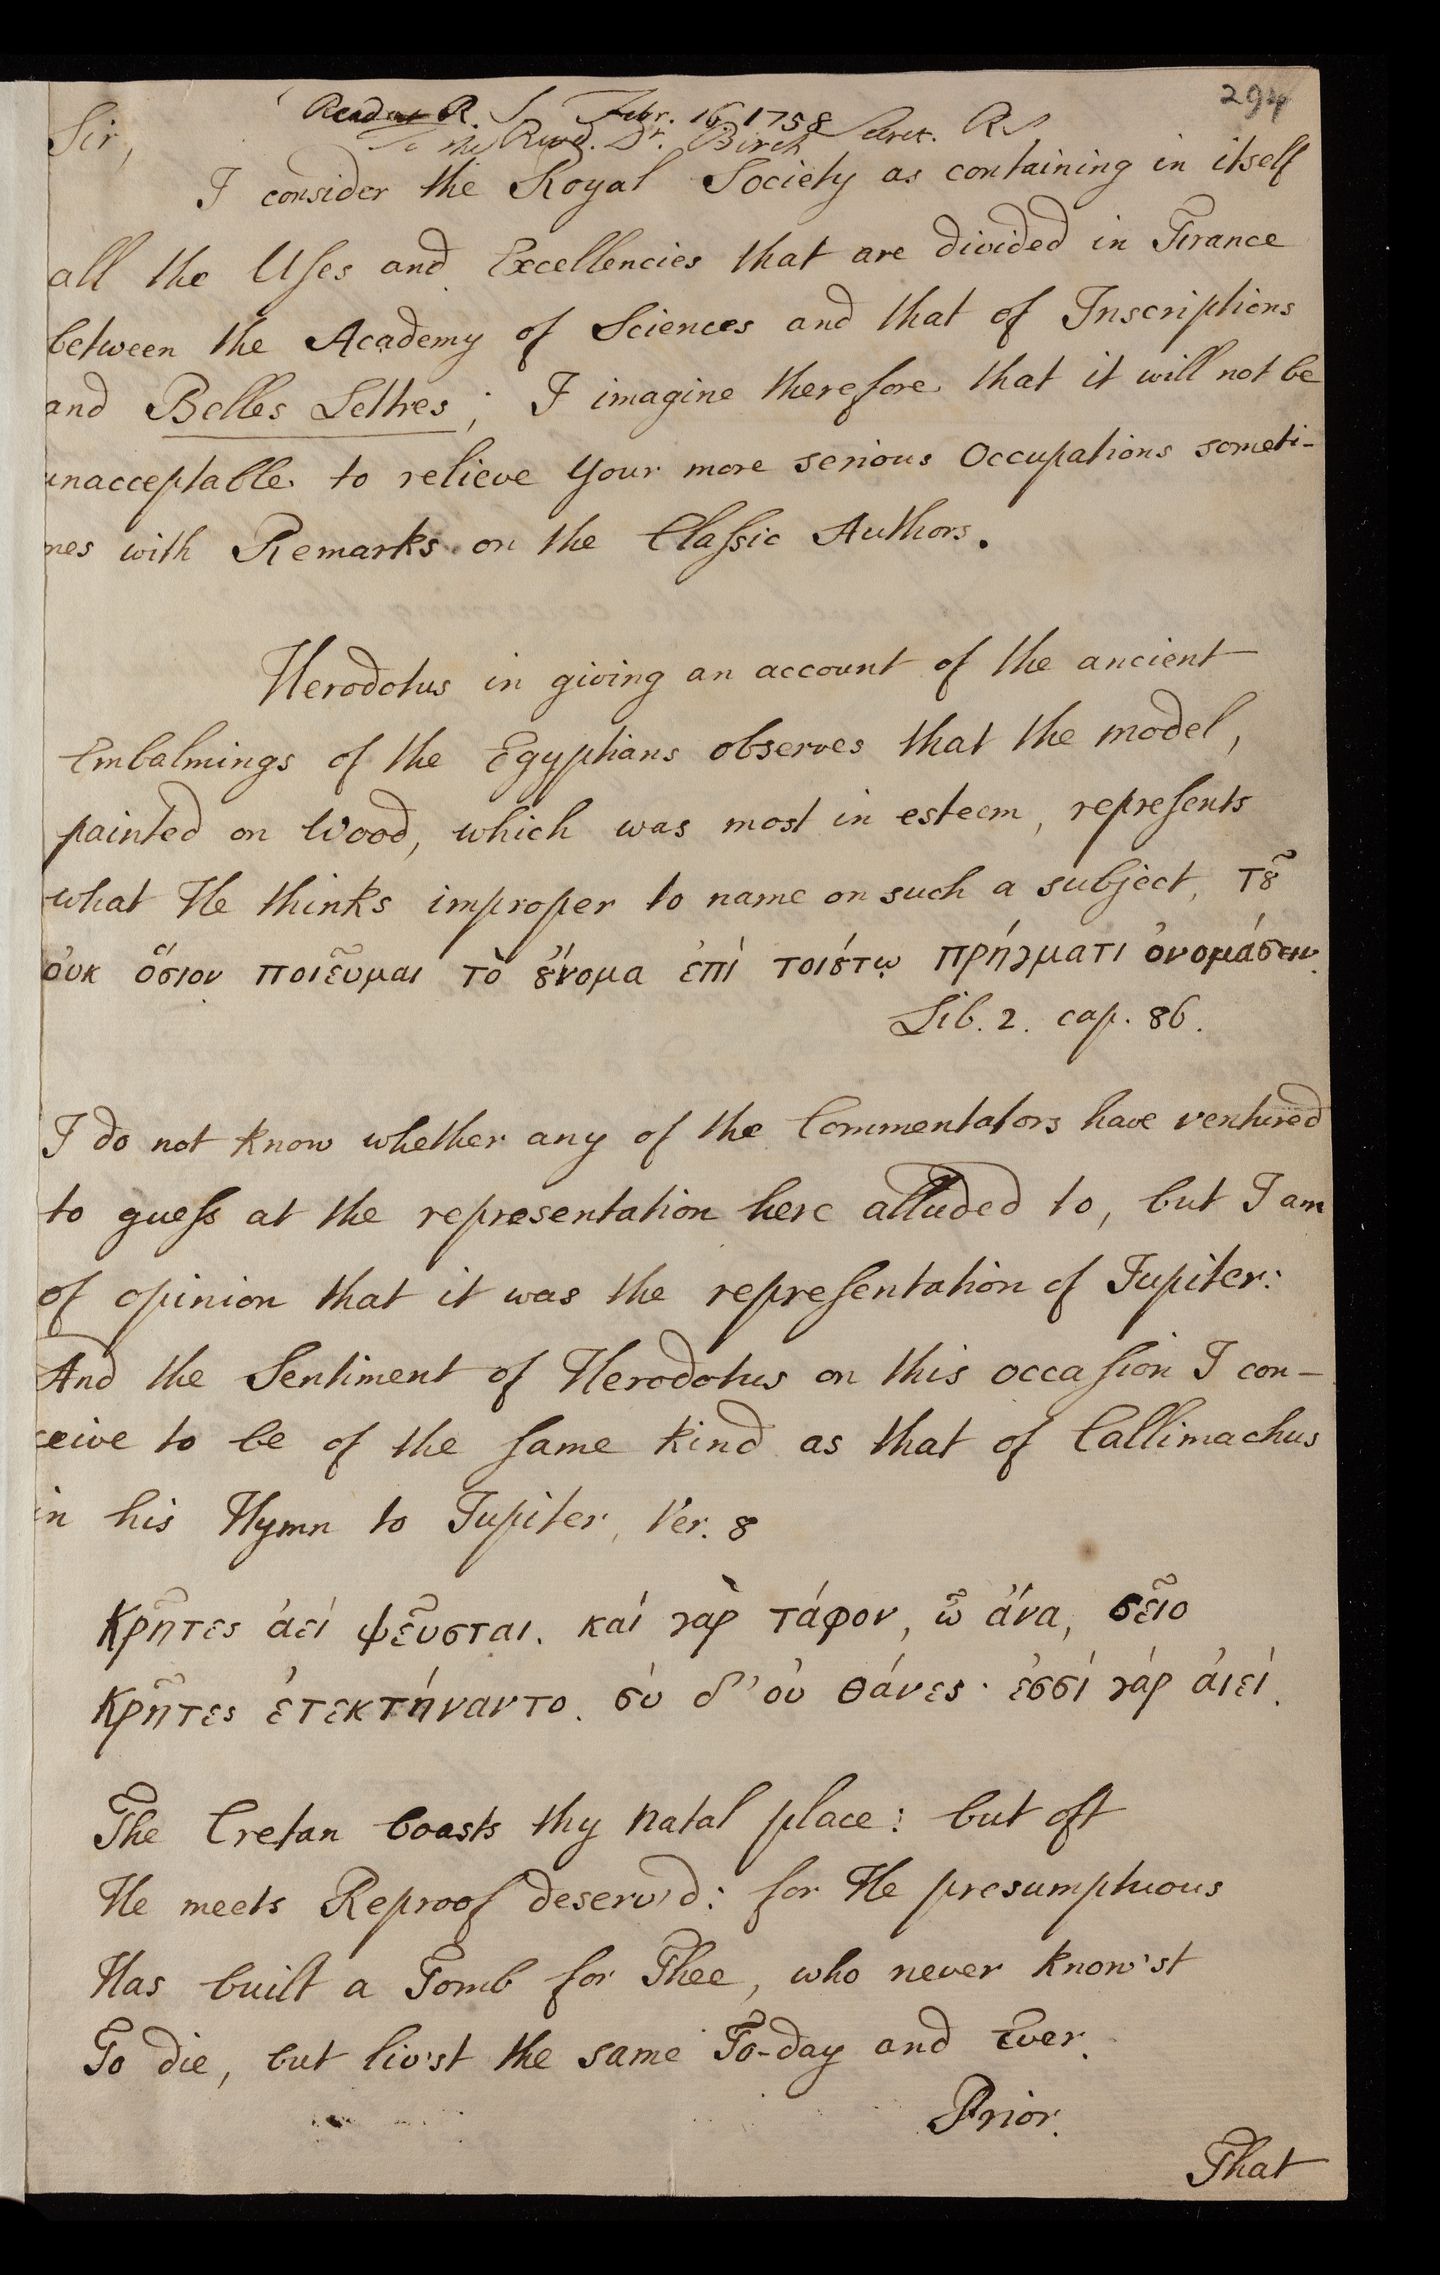 294
Read at R. S. Febr. 16. 1758
To the Revd. Dr. Birch Secret. RS
Sir,
I consider the Royal Society as containing in itself
all the Uses and Excellencies that are divided in France
between the Academy of Sciences and that of Inscriptions
and Belles Lettres; I imagine therefore that it will not be
unacceptable to relieve your more serious Occupations someti-
mes with Remarks on the Classic Authors.
Herodotus in giving an account of the ancient
Embalmings of the Egyptians observes that the model,
painted on Wood, which was most in esteem, represents
what He thinks improper to name on such a subject, τȣ̃
ὀυκ ὅσιον ποιεῦμαι τὸ ȣ̓́νομα ἐπί τοιȣ́τῳ πρήγματι ὀνομάσειν.
Lib. 2. cap. 86.
I do not know whether any of the Commentators have ventured
to guess at the representation here alluded to, but I am
of opinion that it was the representation of Jupiter:
And the Sentiment of Herodotus on this occasion I con-
ceive to be of the same kind as that of Callimachus
in his Hymn to Jupiter, Ver. 8
Κρῆτες ἀεί ψεῦσται. καί γὰρ τάφον, ὦ ἄνα, σεῖο
Κρῆτες ἐτεκτήναντο. σύ δ' ὀυ θάνες· ἐσσί γάρ ἀιεί.
The Cretan boasts thy natal place: but oft
He meets Reproof deserv'd: for He presumptuous
Has built a Tomb for Thee, who never know'st
To die, but liv'st the same To-day and Ever.
Prior.
That